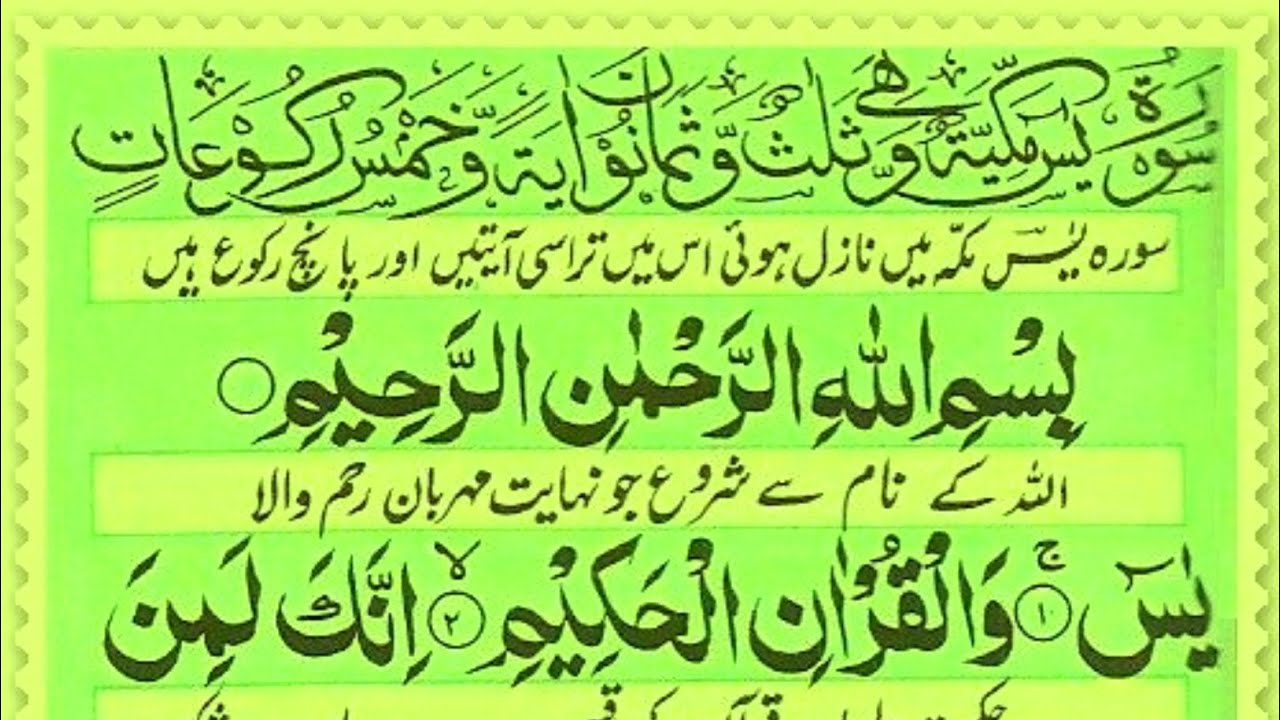 سُوْرَةُ يٰسٓ مَكِّيَّةٌ وَّهِيَ ثَلٰثٌ وَّثَمَانُوْنَ اٰيَةً وَّخَمْسُ رُكُوْعَاتٍ
سورہ یٰسٓ مکّہ میں نازل ہوئی اس میں تراسی آیتیں اور پانچ رکوع ہیں
بِسْمِ اللّٰهِ الرَّحْمٰنِ الرَّحِيْمِ ○
اللہ کے نام سے شروع جو نہایت مہربان رحم والا
يٰسٓ ۚ﴿۱﴾ وَالْقُرْاٰنِ الْحَكِيْمِ ۙ﴿۲﴾ اِنَّكَ لَمِنَ